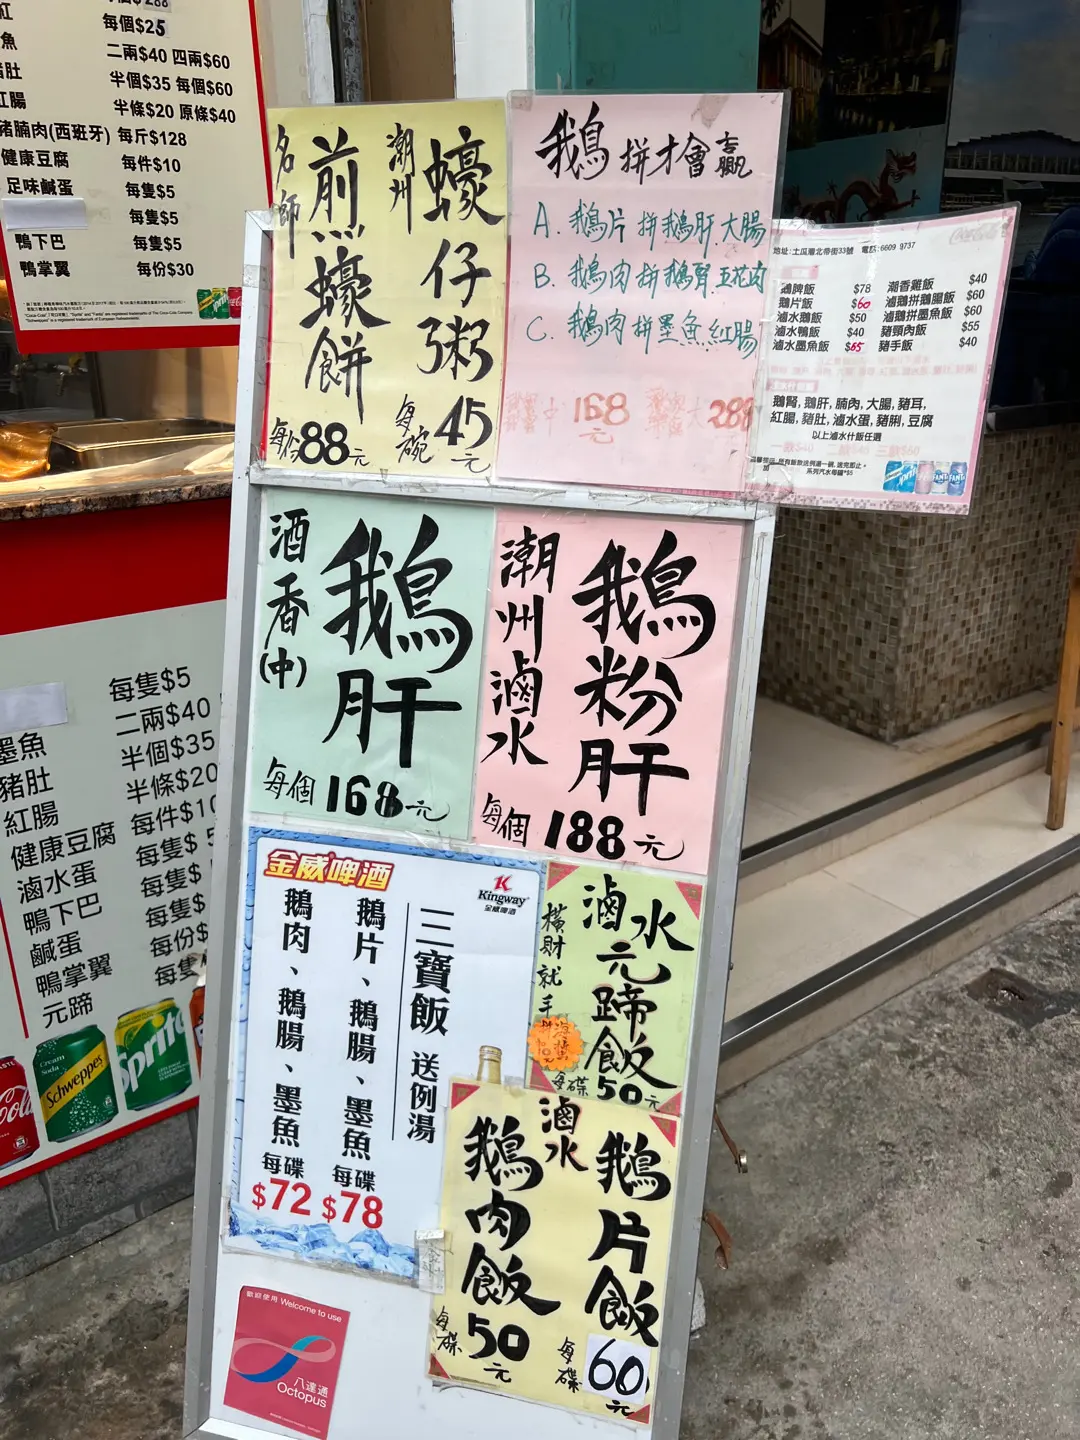 每個$25
二兩$40 四兩$60
半個$35 每個$60
半條$20 原條$40
豬腩肉(西班牙) 每斤$128
健康豆腐 每件$10
足味鹹蛋 每隻$5
每隻$5
鴨下巴 每隻$5
鴨掌翼 每份$30
名師
煎蠔餅
每份88元
潮州
蠔仔粥
每碗45元
鵝拼才會贏
A. 鵝片拼鵝肝.大腸
B. 鵝肉拼鵝腎.五花肉
C. 鵝肉拼墨魚.紅腸
中168元 大288
地址:土瓜灣北帝街33號 電話:6609 9737
鵝髀飯 $78
鵝片飯 $60
滷水鵝飯 $50
滷水鴨飯 $40
滷水墨魚飯 $65
潮香雞飯 $40
滷鵝拼鵝腸飯 $60
滷鵝拼墨魚飯 $60
豬頸肉飯 $55
豬手飯 $40
鵝腎, 鵝肝, 腩肉, 大腸, 豬耳,
紅腸, 豬肚, 滷水蛋, 豬脷, 豆腐
以上滷水什飯任選
酒香(中)
鵝肝
每個168元
潮州滷水
鵝粉肝
每個188元
每隻$5
墨魚 二兩$40
豬肚 半個$35
紅腸 半條$20
健康豆腐 每件$10
滷水蛋 每隻$
鴨下巴 每隻$
鹹蛋 每隻$
鴨掌翼 每份$
元蹄 每隻
Coca
Cream Soda
Schweppes
Sprite
金威啤酒
Kingway
金威啤酒
三寶飯 送例湯
鵝片、鵝腸、墨魚 每碟 $78
鵝肉、鵝腸、墨魚 每碟 $72
滷水元蹄飯
橫財就手
每碟50元
滷水
鵝片飯
每碟60元
鵝肉飯
每碟50元
歡迎使用 Welcome to use
八達通
Octopus